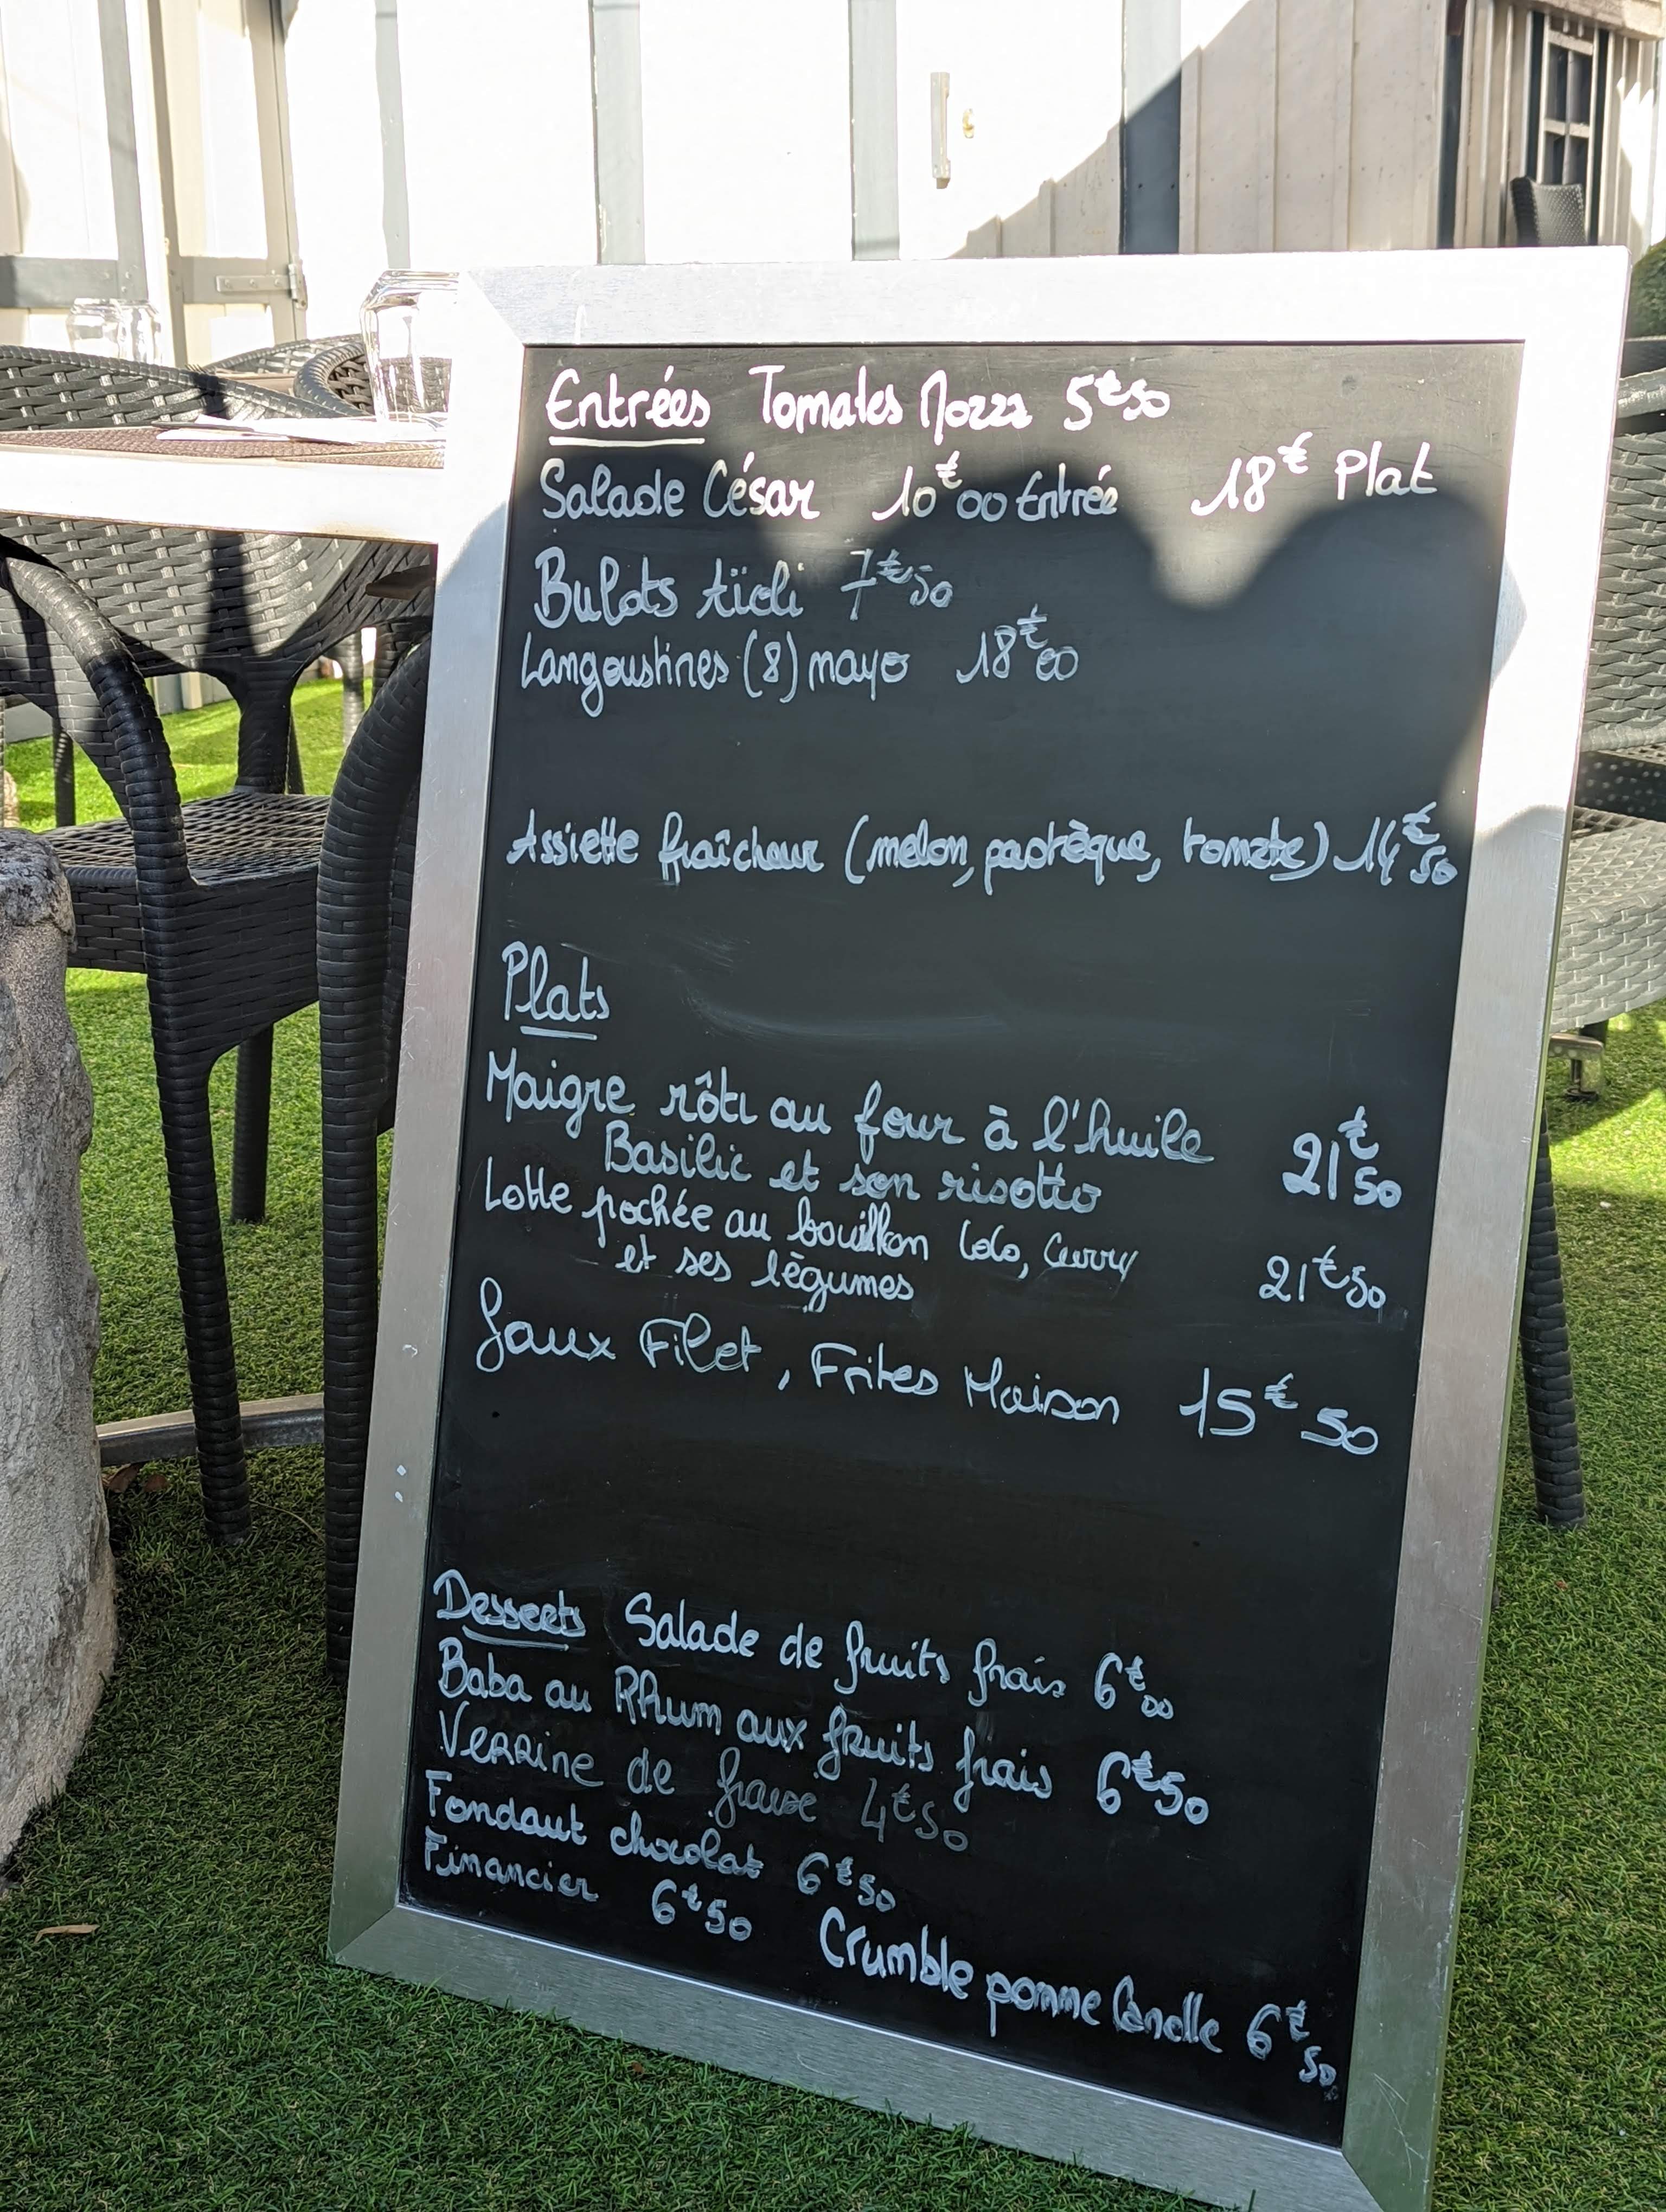 Entrées Tomates Mozza 5€50
Salade César 10€00 Entrée 18€ Plat
Bulots Aïoli 7€50
Langoustines (8) mayo 18€00
Assiette fraîcheur (melon, pastèque, tomate) 14€50
Plats
Maigre rôti au four à l'huile 21€50
Basilic et son risotto
Lotte pochée au bouillon Coco, Curry
et ses légumes 21€50
Faux Filet, Frites Maison 15€50
Desserts Salade de fruits frais 6€00
Baba au Rhum aux fruits frais 6€50
Verrine de fraise 4€50
Fondant chocolat 6€50
Financier 6€50
Crumble pomme Canelle 6€50